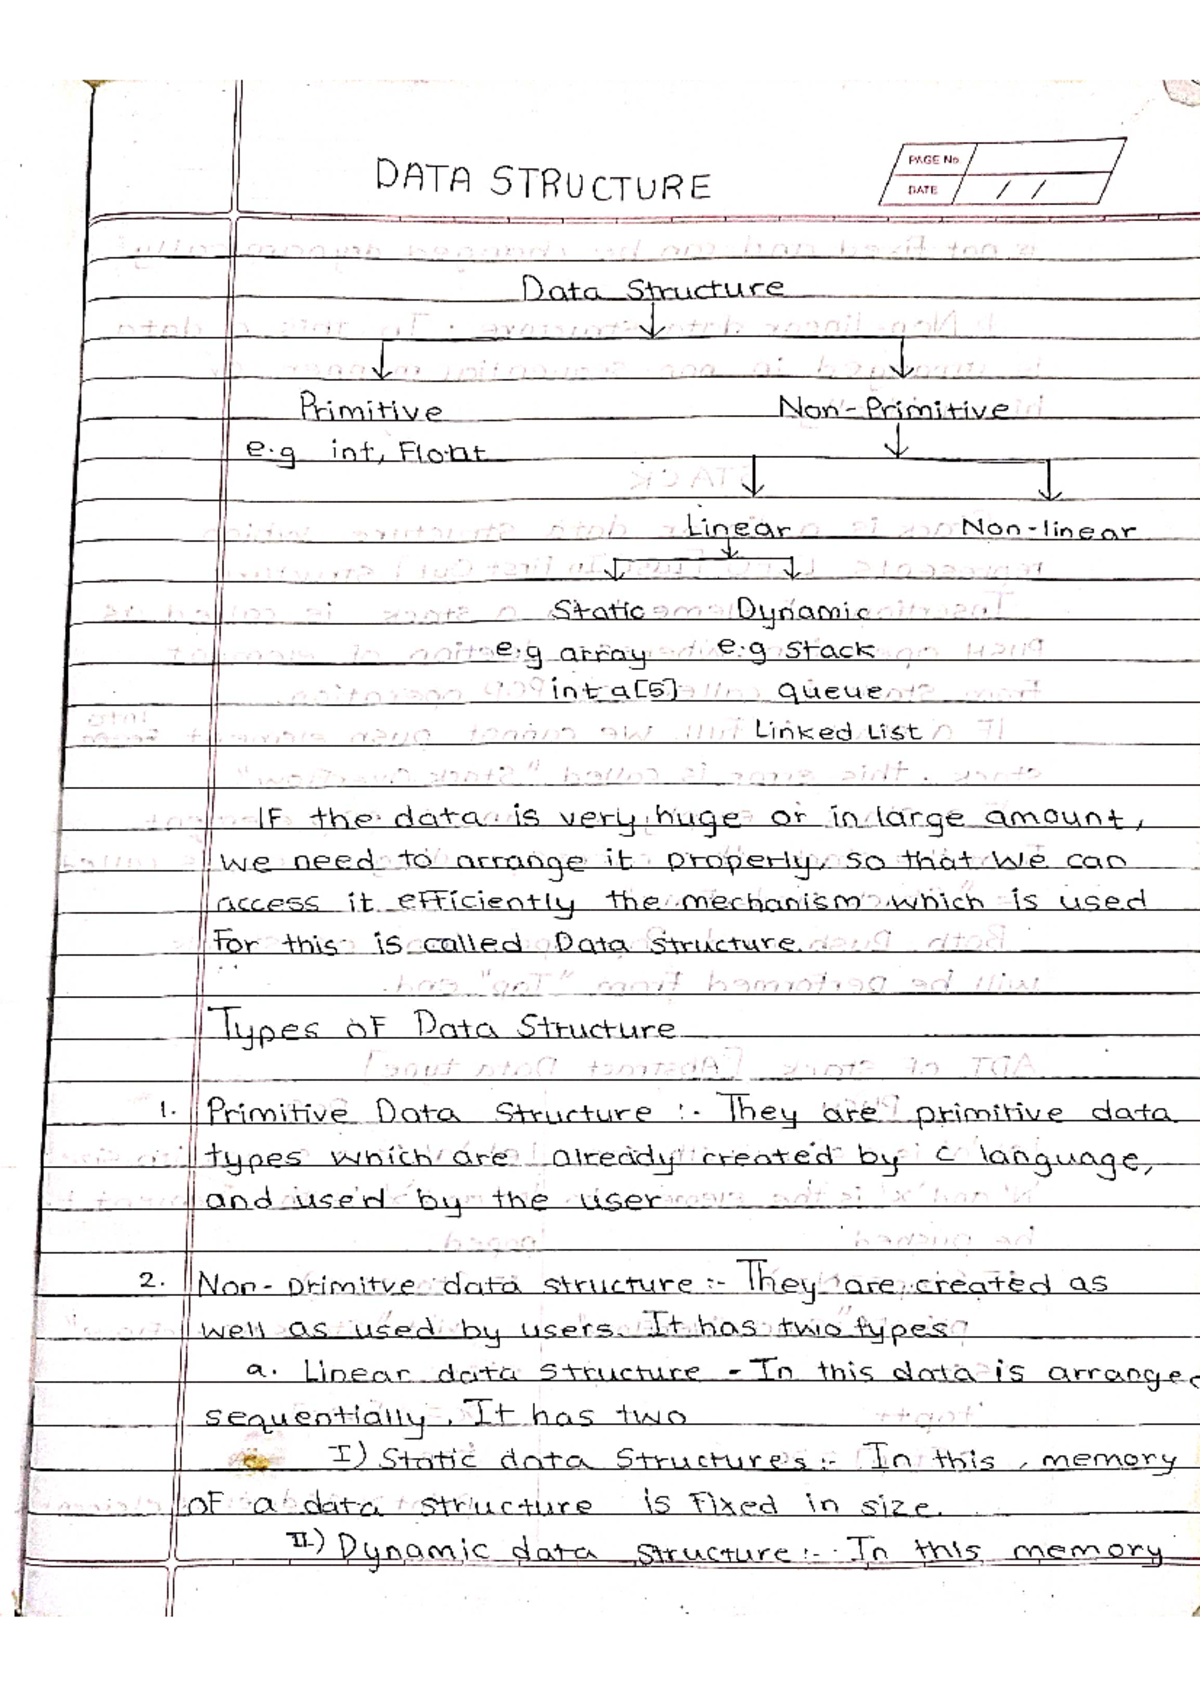 DATA STRUCTURE
PAGE No.
DATE / /
Data Structure
Primitive Non-Primitive
e.g int, Float
Linear Non-linear
Static Dynamic
e.g array e.g Stack
int a[5] queue
Linked List
IF the data is very huge or in large amount,
we need to arrange it properly, so that we can
access it efficiently the mechanism which is used
For this is called Data Structure.
Types of Data Structure
1. Primitive Data Structure :- They are primitive data
types which are already created by C language,
and used by the user
2. Non-primitve data structure :- They are created as
well as used by users. It has two types
a. Linear data structure - In this data is arranged
sequentially. It has two
I) Static data Structures :- In this, memory
of a data structure is fixed in size.
II) Dynamic data structure :- In this memory